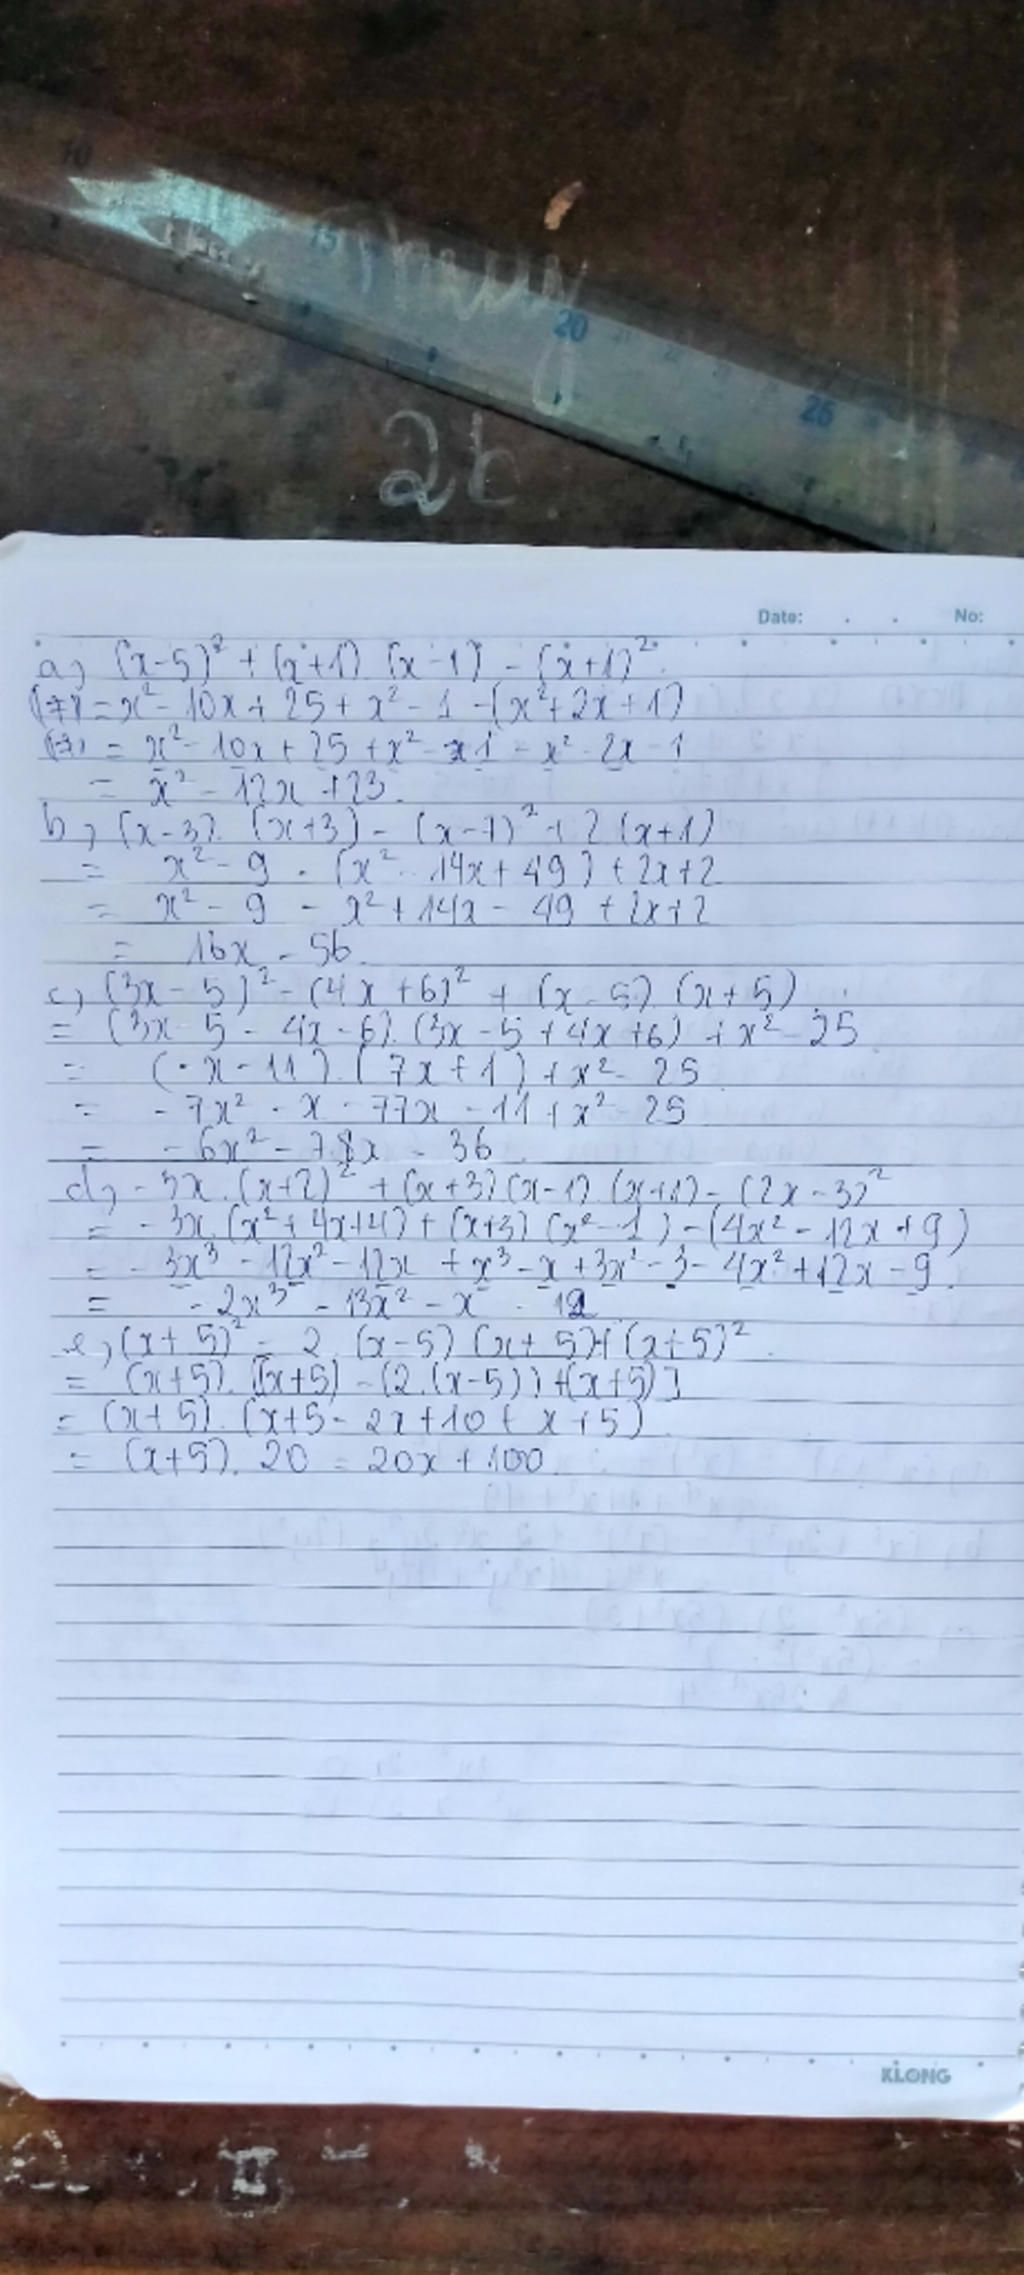 10
15
Thuy
20
21
22
25
2b
Date: . . No:
a, (x-5)² + (x+1) (x-1) - (x+1)²
= x² - 10x + 25 + x² - 1 - (x² + 2x + 1)
= x² - 10x + 25 + x² - 1 - x² - 2x - 1
= x² - 12x + 23.
b, (x-3). (x+3) - (x-7)² + 2 (x+1)
= x² - 9 - (x² - 14x + 49) + 2x + 2
= x² - 9 - x² + 14x - 49 + 2x + 2
= 16x - 56.
c, (3x - 5)² - (4x + 6)² + (x - 5). (x + 5)
= (3x - 5 - 4x - 6). (3x - 5 + 4x + 6) + x² - 25
= (-x - 11). (7x + 1) + x² - 25
= -7x² - x - 77x - 11 + x² - 25
= -6x² - 78x - 36
d, -3x. (x+2)² + (x+3) (x-1). (x+1) - (2x - 3)²
= -3x. (x² + 4x + 4) + (x+3) (x² - 1) - (4x² - 12x + 9)
= -3x³ - 12x² - 12x + x³ - x + 3x² - 3 - 4x² + 12x - 9.
= -2x³ - 13x² - x - 12
e, (x + 5)² - 2. (x-5) (x+5) + (x+5)².
= (x+5). [(x+5) - (2.(x-5)) + (x+5)]
= (x+5). (x+5 - 2x + 10 + x + 5)
= (x+5). 20 = 20x + 100
KLONG